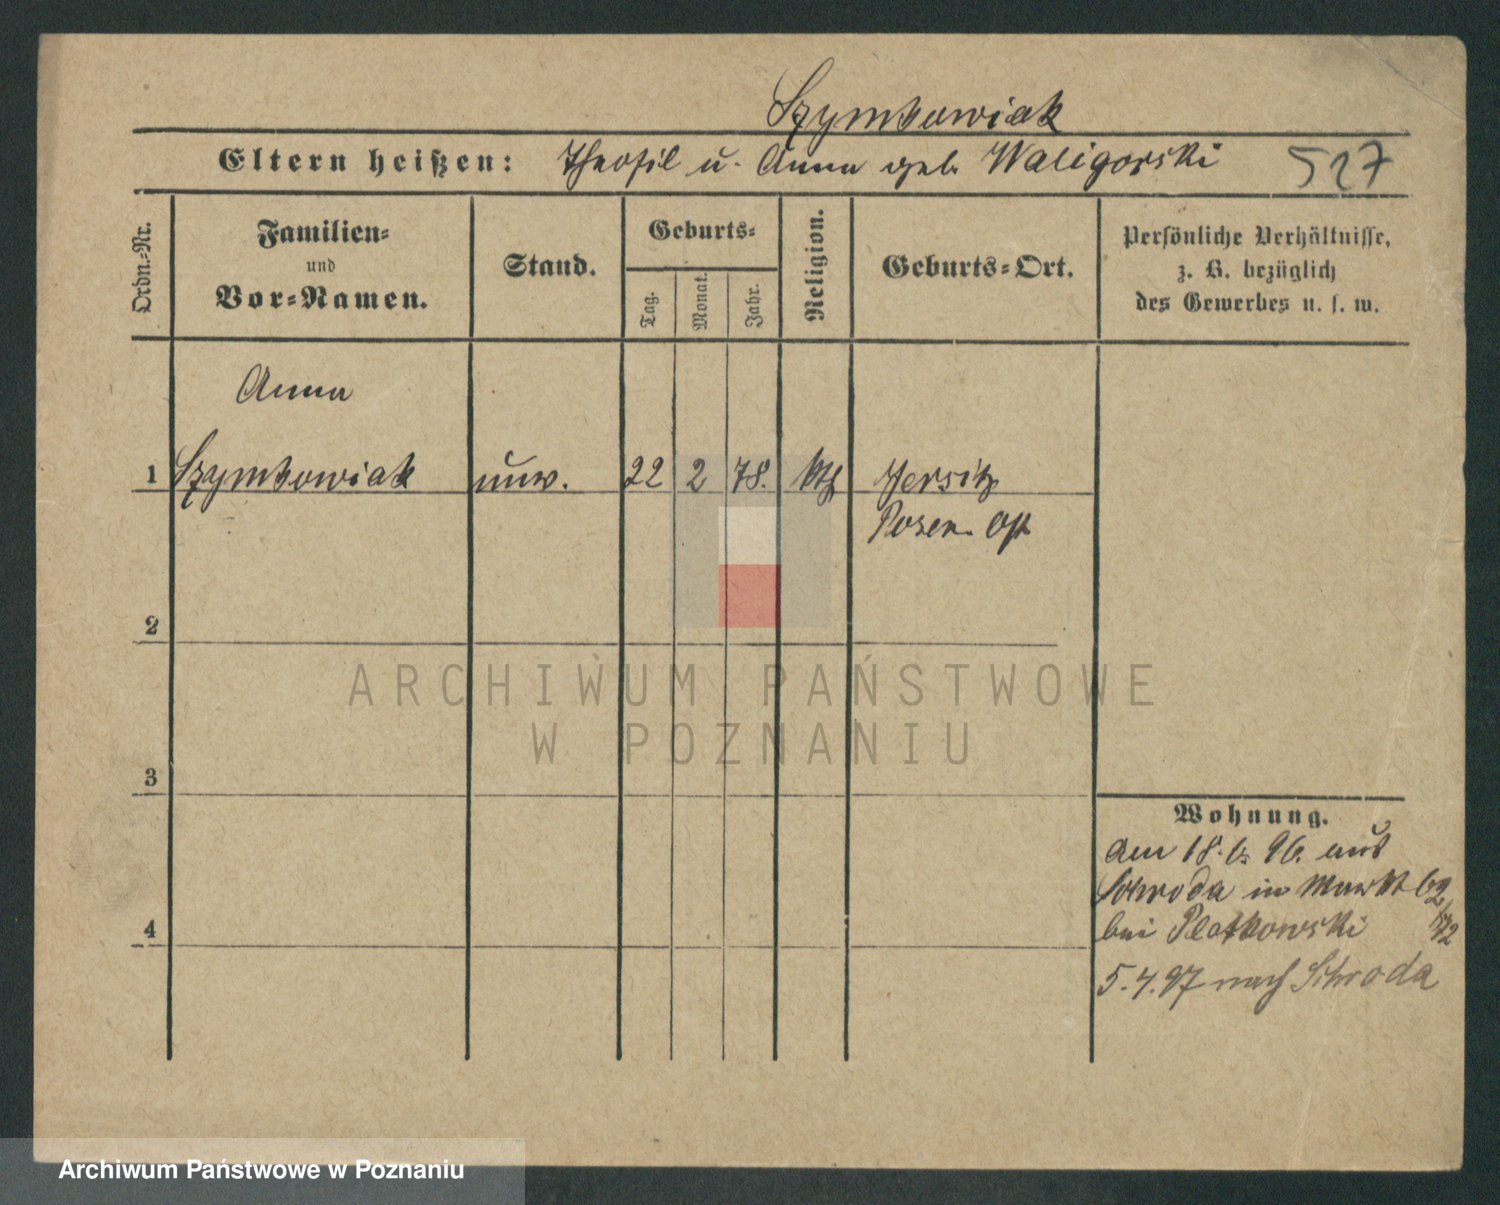 Szymkowiak
Eltern heißen: Theofil u. Anna geb. Waligorski 527
Ordn.-Nr.
Familien-
und
Vor-Namen.
Stand.
Geburts-
Tag.
Monat.
Jahr.
Religion.
Geburts-Ort.
Persönliche Verhältnisse,
z. B. bezüglich
des Gewerbes u. s. w.
Anna
1 Szymkowiak unv. 22 2 78. kth Jersitz
Posen Ost
2
3
4
Wohnung.
am 18. 6. 96. aus
Schroda in Markt 62
bei Plotkowski
5.4.97 nach Schroda
ARCHIWUM PAŃSTWOWE
W POZNANIU
Archiwum Państwowe w Poznaniu